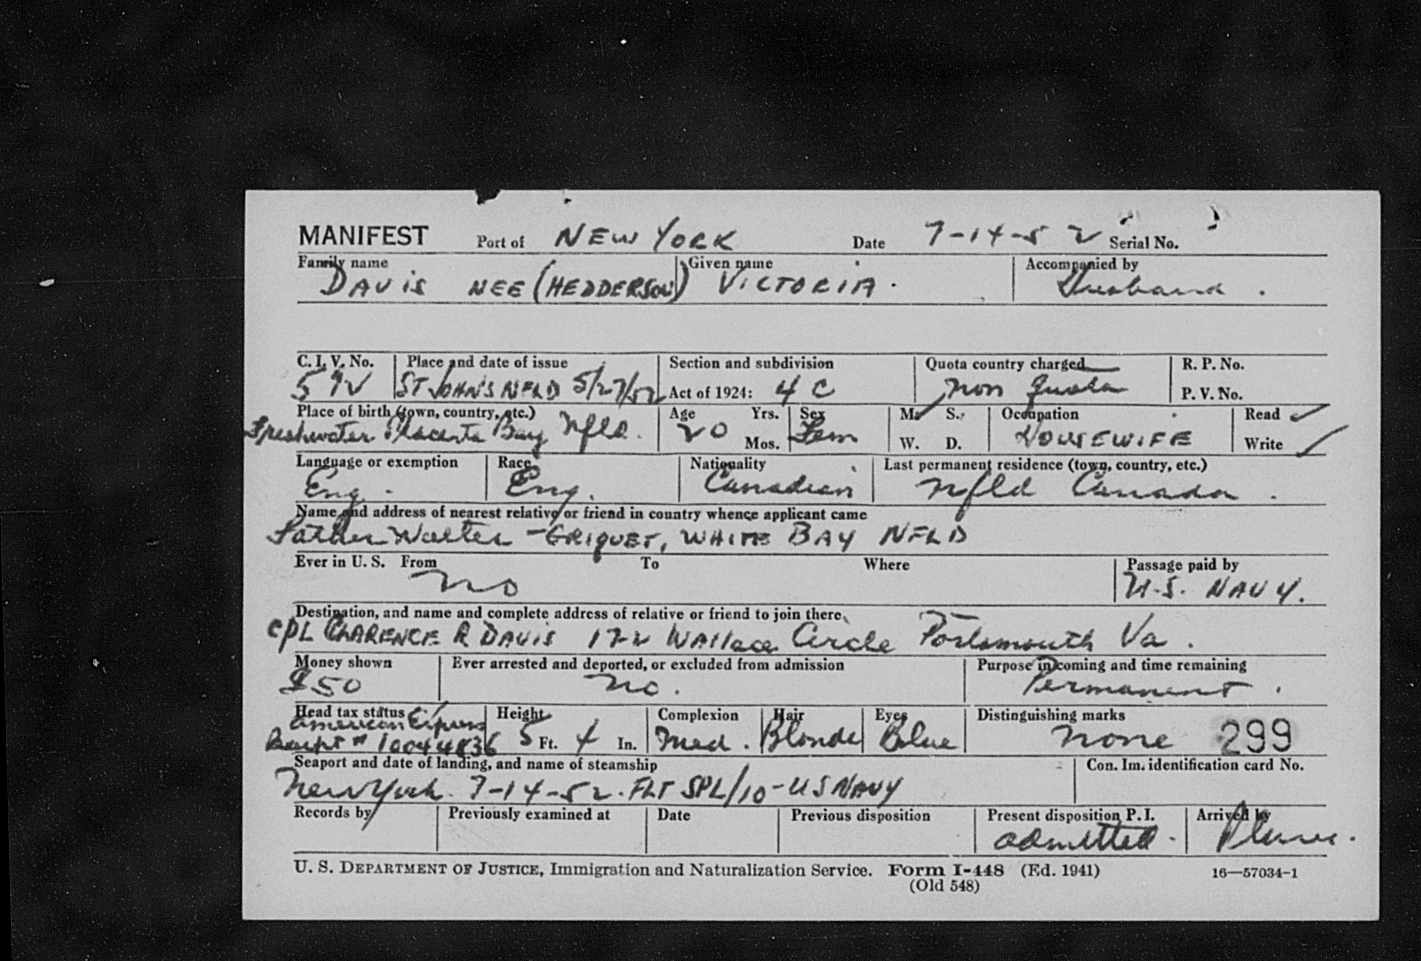 MANIFEST Port of NEW YORK Date 7-14-52 Serial No.
Family name Given name Accompanied by
DAVIS NEE (HEDDERSON) VICTORIA. Husband.
C. I. V. No. Place and date of issue Section and subdivision Quota country charged R. P. No.
592 ST JOHN'S NFLD 5/27/52 Act of 1924: 4 C Non quota P. V. No.
Place of birth (town, country, etc.) Age Yrs. Sex M. S. Occupation Read ✓
Freshwater Placenta Bay Nfld. 20 Mos. Fem W. D. HOUSEWIFE Write ✓
Language or exemption Race Nationality Last permanent residence (town, country, etc.)
Eng. Eng. Canadian Nfld Canada.
Name and address of nearest relative or friend in country whence applicant came
Father Walter - GRIQUET, WHITE BAY NFLD
Ever in U. S. From To Where Passage paid by
NO U.S. NAVY.
Destination, and name and complete address of relative or friend to join there
CPL CLARENCE R DAVIS 172 Wallace Circle Portsmouth Va.
Money shown Ever arrested and deported, or excluded from admission Purpose in coming and time remaining
$50 No. Permanent.
Head tax status Height Complexion Hair Eyes Distinguishing marks
American Express
Receipt # 10044836 5 Ft. 4 In. Med. Blonde Blue None 299
Seaport and date of landing, and name of steamship Con. Im. identification card No.
New York. 7-14-52. FLT SPL/10-US NAVY
Records by Previously examined at Date Previous disposition Present disposition P. I. Arrived by
admitted. Plane.
U. S. DEPARTMENT OF JUSTICE, Immigration and Naturalization Service. Form I-448 (Ed. 1941) 16—57034-1
(Old 548)